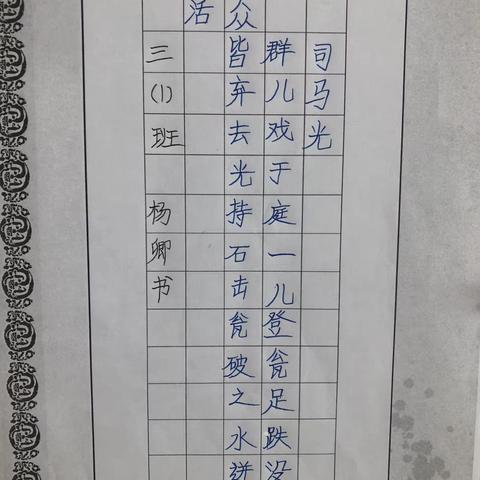 司马光
群儿戏于庭一儿登瓮足跌没
众皆弃去光持石击瓮破之水迸
活
三(1)班 杨卿书